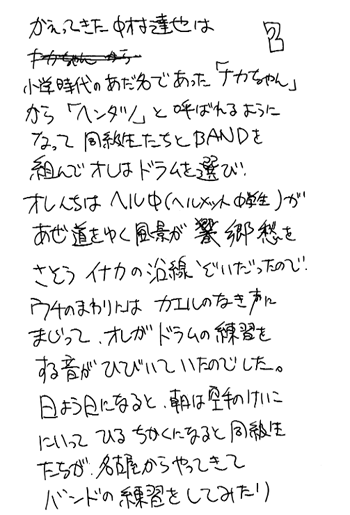 かえってきた中村達也は
2
小学時代のあだ名であった「ナカちゃん」
から「ヘンダ八」と呼ばれるように
なって同級生たちとBANDを
組んでオレはドラムを選び.
オレんちはヘル中(ヘルメット中学生)が
あぜ道をゆく風景が 郷愁を
さそう イナカの沿線ぞいだったので.
ウチのまわりには カエルのなき声に
まじって、オレがドラムの練習を
する音がひびいていたのでした。
日よう日になると、朝は空手のけいこ
にいって ひるちかくになると同級生
たちが、名古屋からやってきて
バンドの練習をしてみたり